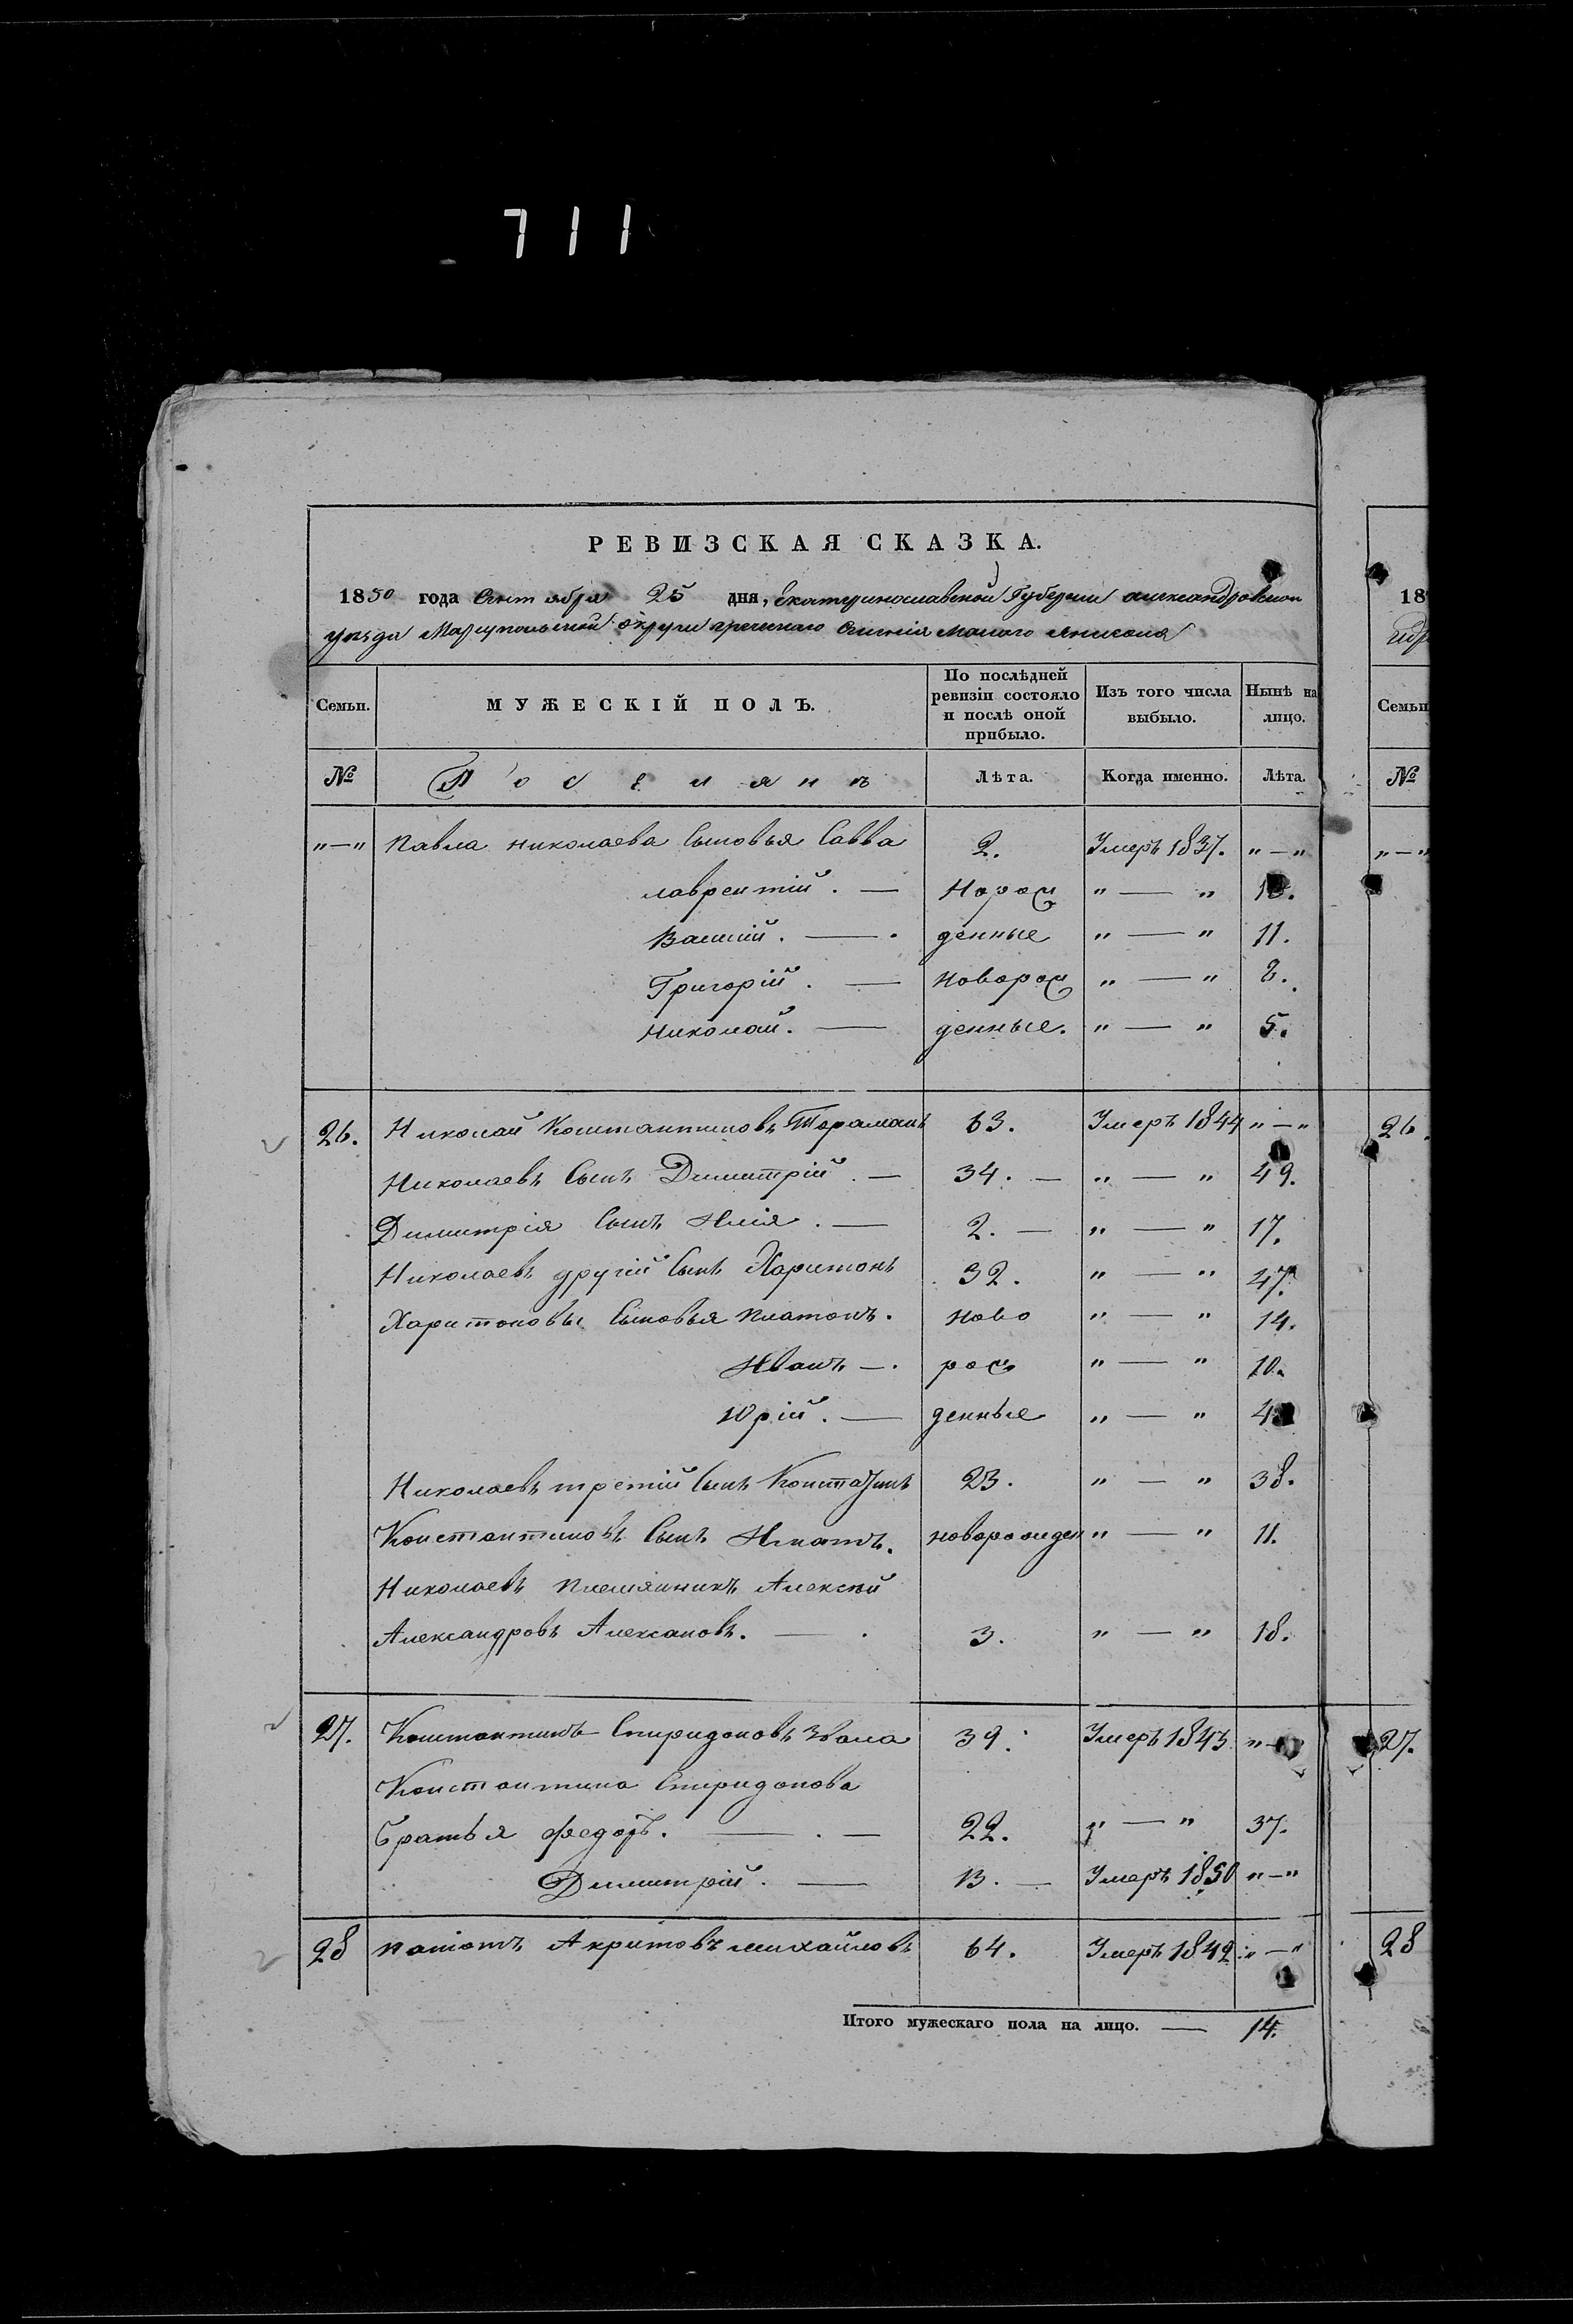 711
РЕВИЗСКАЯ СКАЗКА.
1850 года Сентября 25 дня, Екатеринославской Губернии александровскои
уезда Мариупольской округи греческаго Селенія малого Янисоля
Семьи. МУЖЕСКІЙ ПОЛЪ. По послѣдней ревизіи состояло и послѣ оной прибыло. Изъ того числа выбыло. Нынѣ на лицо.
№ Поселянъ Лѣта. Когда именно. Лѣта.
"—" Павла николаева Сыновья Савва 2. Умеръ 1837. "—"
лаврентій. — Норож "—"
Василій. — денные "—" 11.
Григорій. — новорож "—" 8.
николай. — денные. "—" 5.
26. Николай Константиновъ Тараманъ 63. Умеръ 1844 "—"
Николаевъ Сынъ Димитрій. — 34. — "—" 49.
Димитрія Сынъ Илія. — 2. — "—" 17.
Николаевъ другій Сынъ Харитонъ 32. "—" 47.
Харитоновы Сыновья платонъ. ново "—" 14.
Иванъ —. рож "—" 10.
Юрій. — денные "—" 4
Николаевъ третій Сынъ Константинъ 23. "—" 38.
Константиновъ Сынъ Игнатъ. новорожден "—" 11.
Николаевъ племянникъ Алексѣй
Александровъ Алексановъ. — 3. "—" 18.
27. Константинъ Спиридоновъ 39. Умеръ 1845 "—"
Константина Спиридонова
братья федоръ. — 22. "—" 37.
Димитрій. — 13. — Умеръ 1850 "—"
28 Акритовъ михайловъ 64. Умеръ 1842 "—"
Итого мужескаго пола на лицо. — 14.
18
Семьи
№
"—"
26.
27.
28